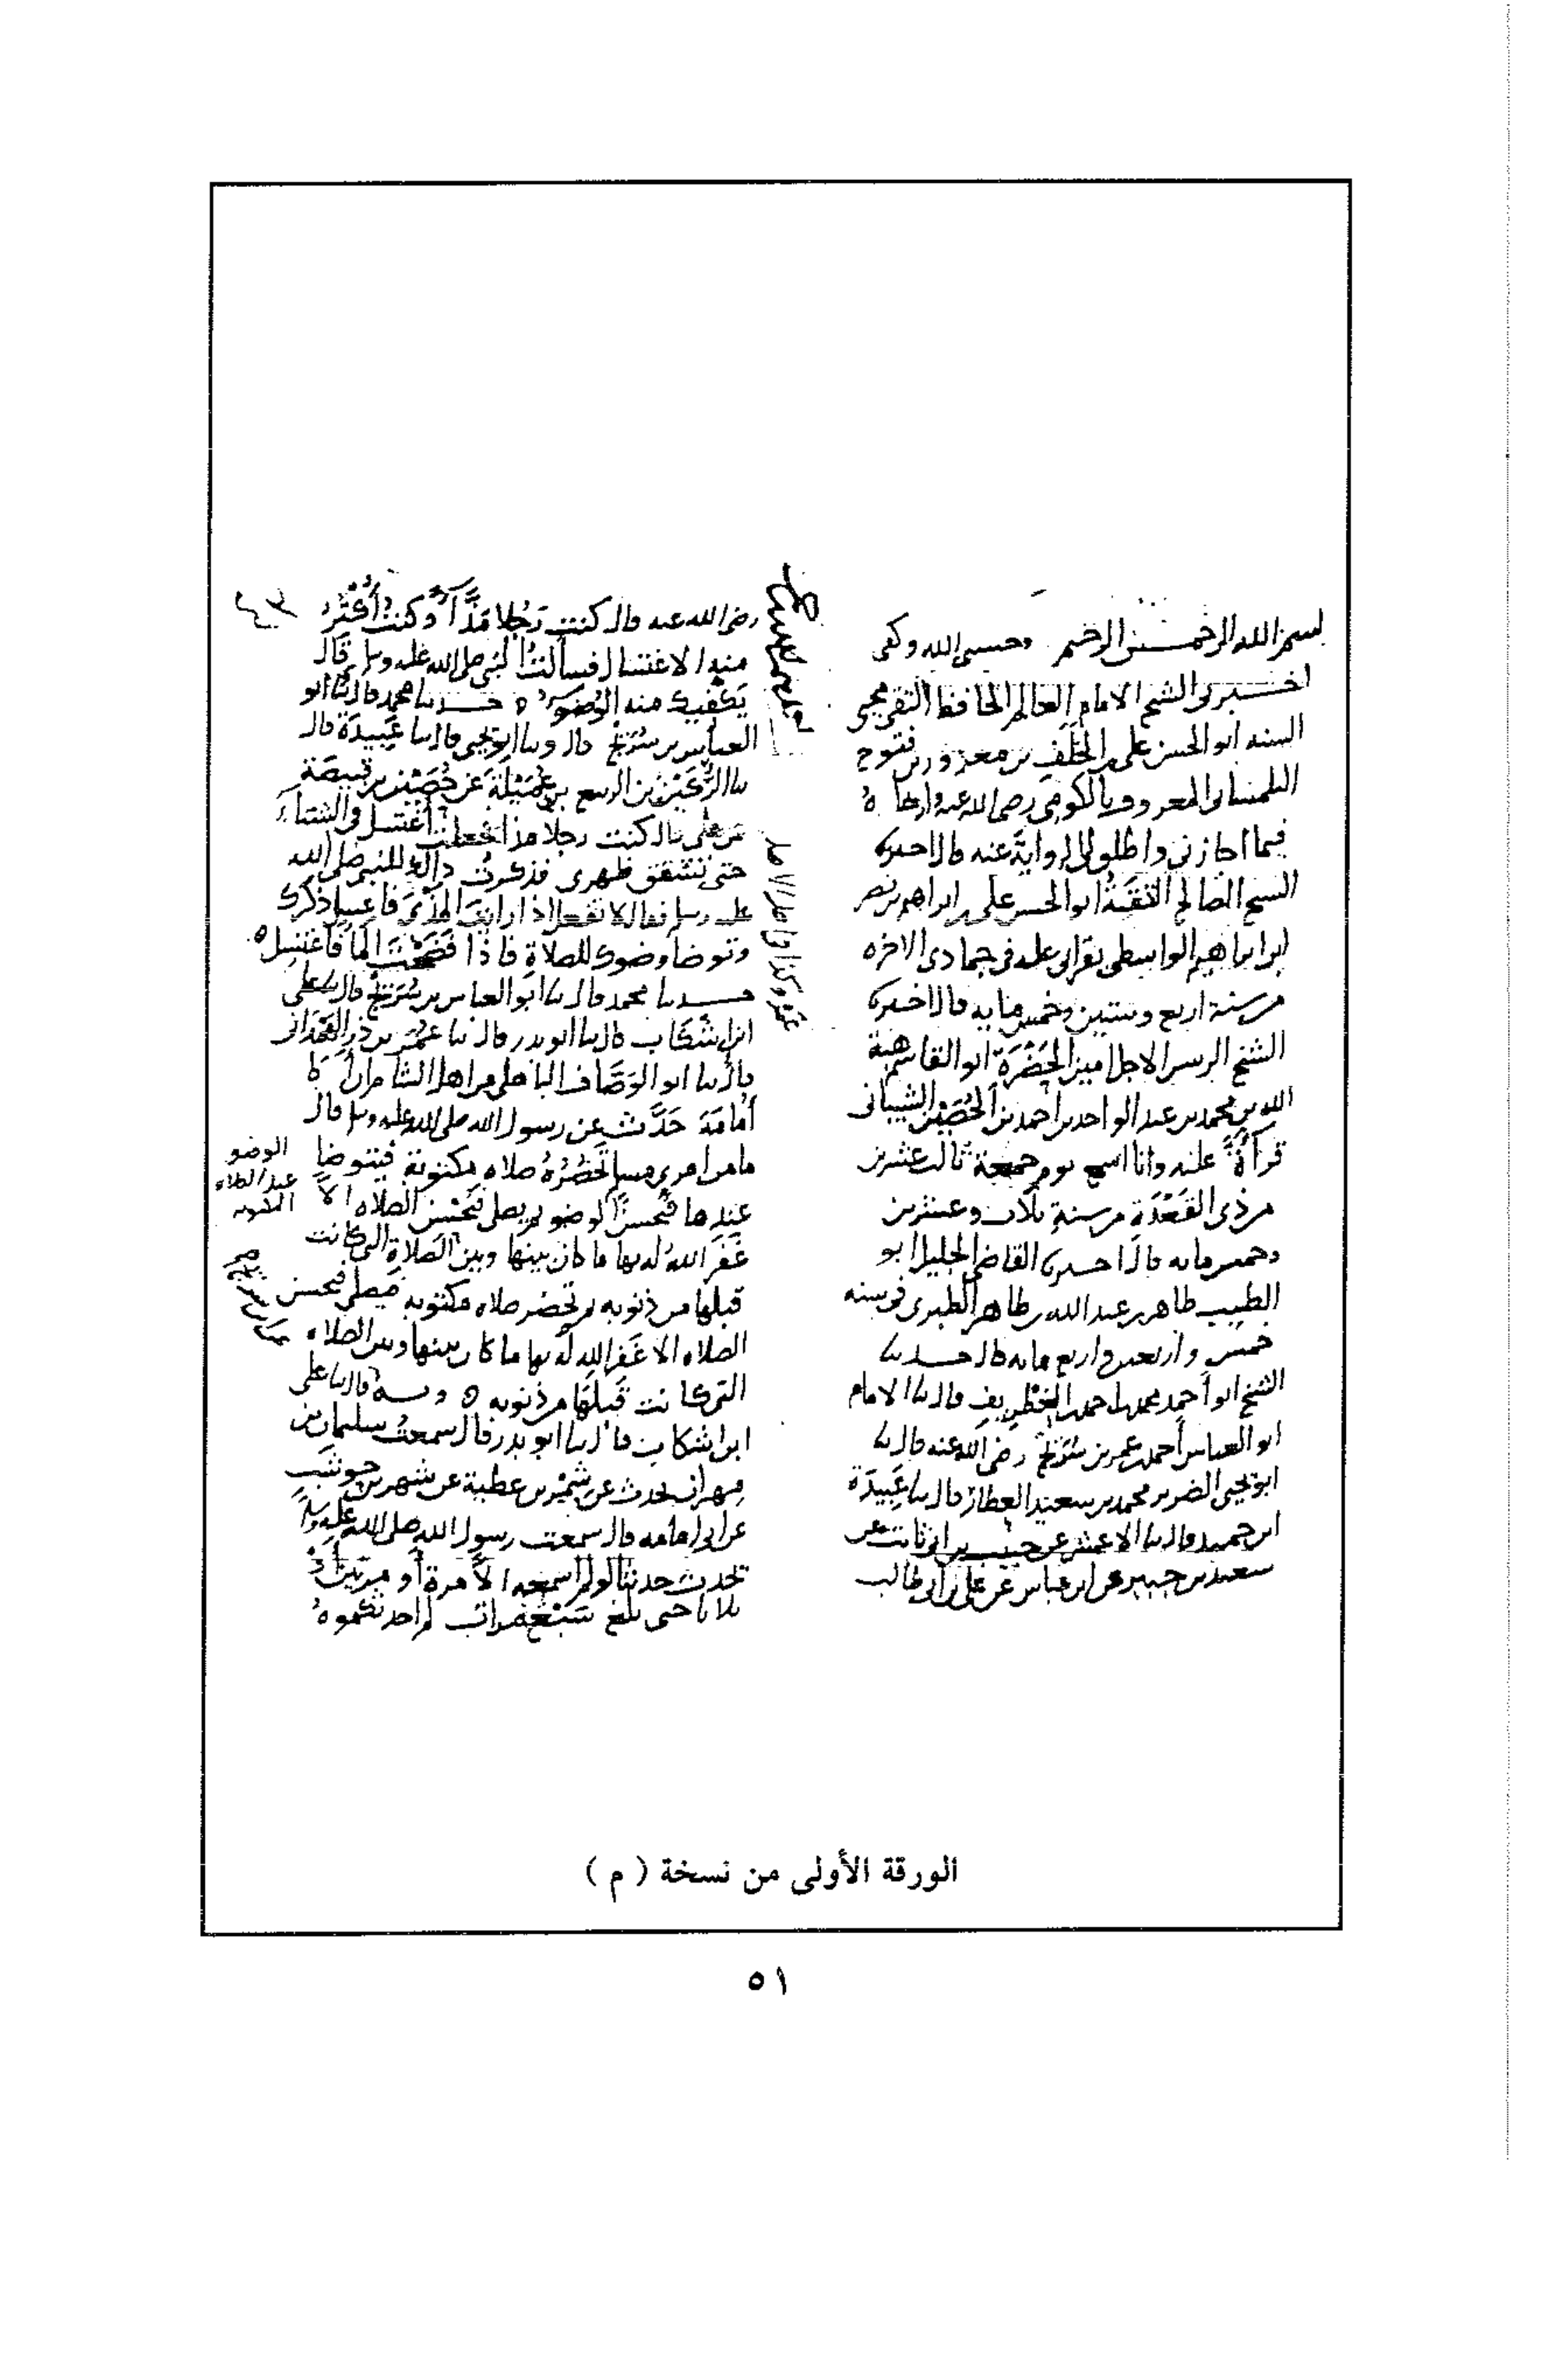 بسم الله الرحمن الرحيم وحسبى الله وكفى
اخبرنى الشيخ الامام العالم الحافظ التقى محيى
السنه ابو الحسن على بن الخلف بن معزوز بن فتوح
التلمسانى المعروف بالكومى رضى الله عنه وارضاه
فيما اجازنى واطلق لى الرواية عنه قال اخبرنا
الشيخ الصالح الثقة ابو الحسن على بن ابراهيم بن نصر
ابن ابراهيم الواسطى بقراتى عليه فى جمادى الاخره
من سنة اربع وستين وخمس مايه قال اخبرنا
الشيخ الرييس الاجل امين الحضرة ابو القاسم هبة
الله بن محمد بن عبد الواحد بن احمد بن الحصين الشيبانى
قرآةً عليه وانا اسمع يوم جمعة ثالث عشرين
من ذى القعدة من سنة ثلاث وعشرين
وخمس مايه قال اخبرنا القاضى الجليل ابو
الطيب طاهر بن عبد الله بن طاهر الطبرى فى سنه
خمس واربعين واربع مايه قال حدثنا
الشيخ ابو أحمد محمد بن احمد بن الغطريف قال نا الامام
ابو العباس أحمد بن عمر بن سُرَيْج رضى الله عنه قال نا
ابو يحيى الضرير محمد بن سعيد العطار قال نا عَبِيدَة
ابن حميد قال نا الاعمش عن حبيب بن ابى ثابت عن
سعيد بن جبير عن ابن عباس عن على بن ابى طالب
رضى الله عنه قال كنت رَجُلا مَذَّآءً وكنت أُكْثِرُ
منه الاغتسال فسألتُ النبى صلى الله عليه وسلم قال
يَكفيك منه الوُضوء ه حدثنا محمد قال نا ابو
العباس بن سُرَيْج قال ونا ابو يحيى قال نا عَبِيدَة قال
نا الرُّكَيْن بن الربيع بن عُمَيْلَة عَن حُصَيْن بن قبيصَة
عن على قال كنت رجلا مذا فجعلت أغتسل فى الشتاءَ
حتى تشقق ظهرى فذكرت ذالك للنبى صلى الله
عليه وسلم فقال لا تفعل اذا رايت المذْىَ فاغسل ذكرك
وتوضا وضوك للصلاةِ فاذا فَضَخْتَ المَا فَاغتسِل ه
حدثنا محمد قال نا ابو العباس بن سُرَيْج قال نا على
ابن اشكاب قال نا ابو بدر قال نا عُمَر بن ذر الهَمْدانى
قال نا ابو الوَصَّاف الباهلى من اهل الشام ان ابا
أُمَامَة حَدَّث عن رسول الله صلى الله عليه وسلم قال
ما من امرى مسلم تَحْضُرُهُ صلاه مكتوبة فيتوضا
عندها فيُحسنُ الوضو ثم يصلى فيُحْسِن الصلاه الا
غَفَرَ اللهُ له بها ما كان بينها وبين الصَلاة التى كانت
قبلها من ذنوبه ثم تحضر صلاه مكتوبه فيصلى فيحسن
الصلاه الا غَفَر الله له بها ما كان بينها وبين الصلاه
التى كانت قَبلَها من ذنوبه ه وبه قال نا على
ابن اشكاب قال نا ابو بدر قال سمعتُ سليمان بن
مِهران يحدث عن شِمْر بن عطية عن شهر بن حوشَب
عن ابى امامه قال سمعت رسول الله صلى الله عليه وسلم
يحدث حديثا لو لم اسمعه الا مرة أو مرتين أو
ثلاثا حتى بلغ سَبْعَ مرات لم احدثكموه
الوضو
عند الصلاه
المكتوبه
الورقة الأولى من نسخة ( م )
٥١